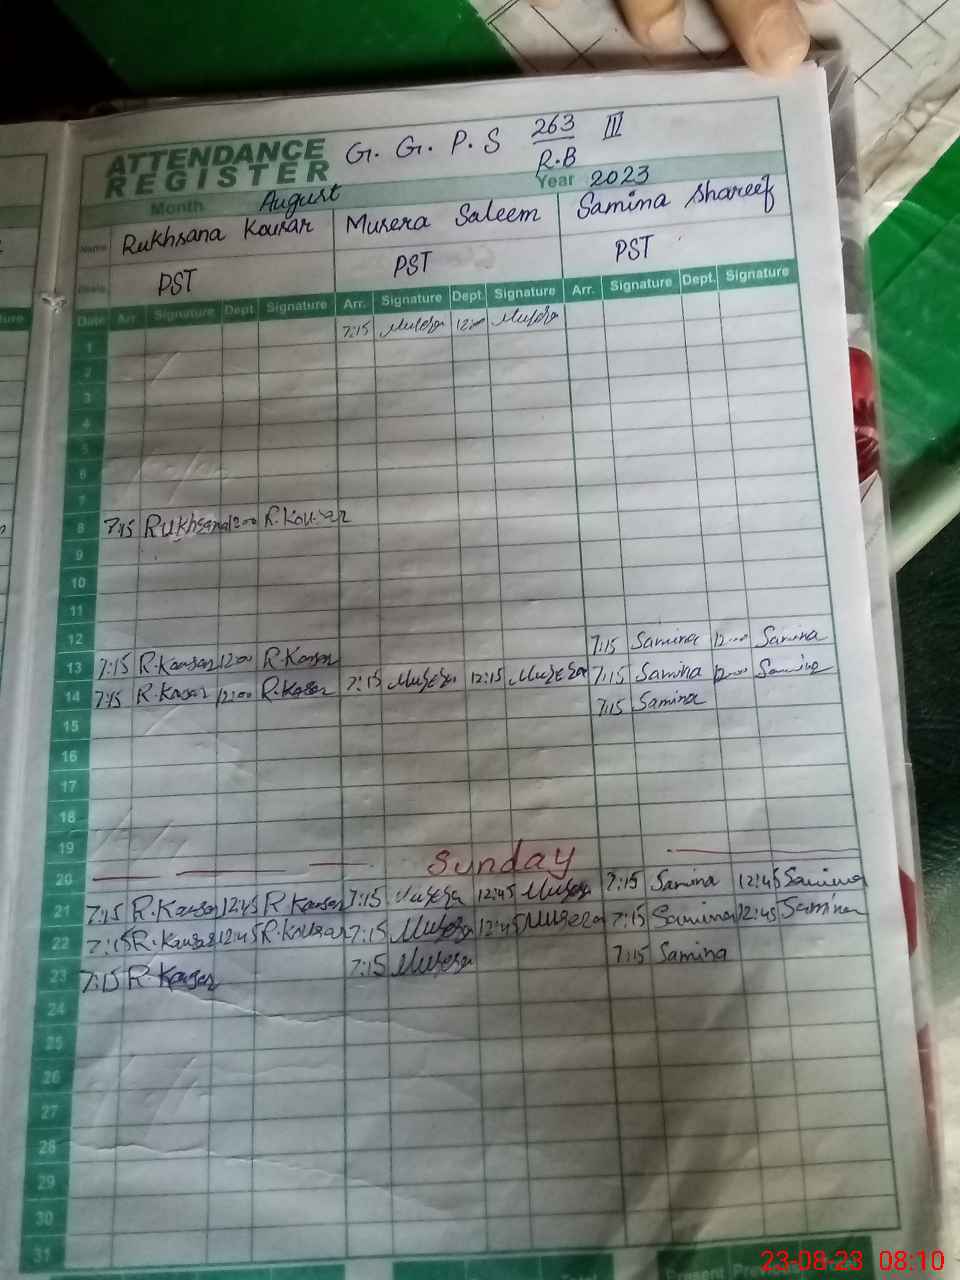 ATTENDANCE REGISTER G. G. P. S 263 III
R.B
Month August Year 2023
Name Rukhsana Kousar Musera Saleem Samina Shareef
PST PST PST
Date Arr. Signature Dept. Signature Arr. Signature Dept. Signature Arr. Signature Dept. Signature
1 7:15 Musera 12:00 Musera
2
3
4
5
6
7
8 7:15 Rukhsana 12:00 R.Kousar
9
10
11
12 7:15 Samina 12:00 Samina
13 7:15 R.Kousar 12:00 R.Kousar 7:15 Samina 12:00 Samina
14 7:15 R.Kousar 12:00 R.Kousar 7:15 Musera 12:15 Musera 7:15 Samina
15
16
17
18
19
20 Sunday
21 7:15 R.Kousar 12:45 R Kousar 7:15 Musera 12:45 Musera 7:15 Samina 12:45 Samina
22 7:15 R.Kousar 12:45 R.Kousar 7:15 Musera 12:45 Musera 7:15 Samina 12:45 Samina
23 7:15 R.Kousar 7:15 Musera 7:15 Samina
24
25
26
27
28
29
30
31
Total Present
23-08-23 08:10